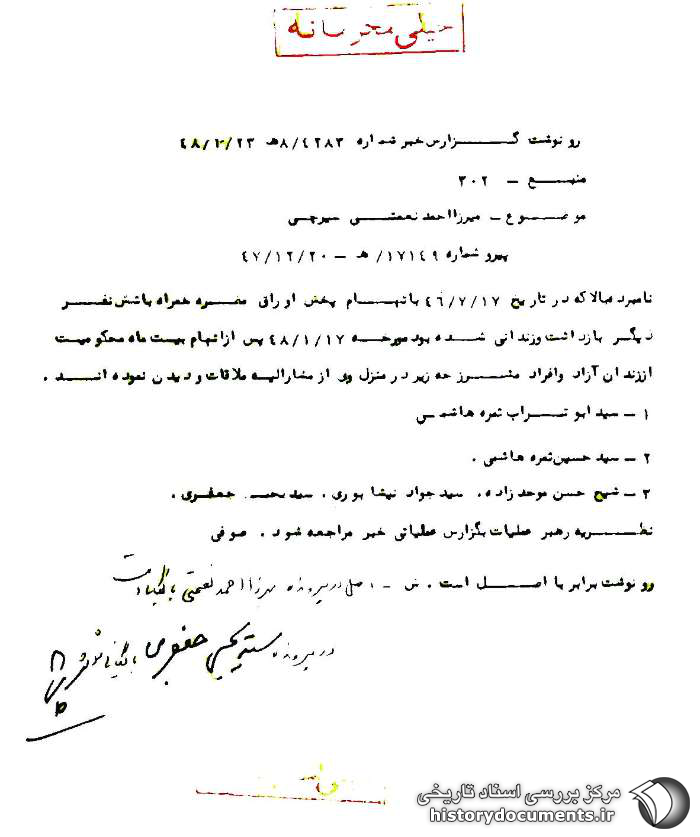 خیلی محرمانه
رونوشت گزارش خبر شماره ۸/٤۲۸۳ه‍ ۲۳/۲/٤۸
منبع – ۳۰۲
موضوع – میرزااحمد نعمتی سیرجی
پیرو شماره ۱۷۱٤۹/ ه‍ – ٤۷/۱۲/۲۰
نامبرده بالا که در تاریخ ٤٦/۷/۱۷ باتهام پخش اوراق مضره همراه باشش نفر
دیگر بازداشت وزندانی شده بود مورخه ٤۸/۱/۱۷ پس ازاتهام بیست ماه محکومیت
اززندان آزاد وافراد مشرزحه زیر در منزل وی از مشارالیه ملاقات و دیدن نموده اند .
۱ – سید ابوتراب ثمره هاشمی
۲ – سید حسین ثمره هاشمی .
۳ – شیخ حسن موحدزاده . سید جواد نیشابوری . سید یحیی جعفری .
نظریه رهبر عملیات بگزارش عملیاتی خبر مراجعه شود . صوفی
رونوشت برابر با اصل است . ش – اصل در پرونده میرزا احمد نعمتی
در پرونده سید یحیی جعفری
مرکز بررسی اسناد تاریخی
historydocuments.ir